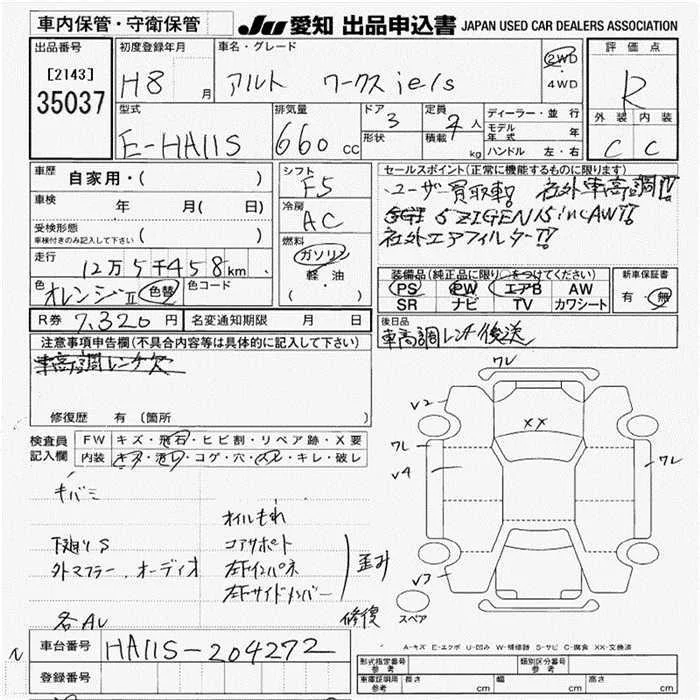 車内保管・守衛保管
JU 愛知 出品申込書 JAPAN USED CAR DEALERS ASSOCIATION
出品番号
[2143]
35037
初度登録年月
H8 月
車名・グレード
アルト ワークス ie/s
2WD
・
4WD
評価点
R
外装 内装
C C
型式
E-HA11S
排気量
660 cc
ドア 3
形状
定員 4 人
積載 kg
ディーラー・並行
モデル年式 年
ハンドル 左・右
車歴
自家用・( )
車検 年 月( 日)
受検形態
車検付きのみ記入して下さい ( )
走行
12万5千458km
色 オレンジII 色替
色コード
シフト
F5
冷房
AC
燃料
ガソリン
軽・油
( ・ )
セールスポイント(正常に機能するものに限ります)
ユーザー買取車! 社外車高調!!
5ZIGEN15inchAW!!
社外エアフィルター!!
装備品(純正品に限り○をつけてください)
PS PW エアB AW
SR ナビ TV カワシート
新車保証書
有・無
R券 7,320円
名変通知期限 月 日
後日品
車高調レンチ後送
注意事項申告欄(不具合内容等は具体的に記入して下さい)
車高調レンチ欠
修復歴 有 〔箇所 〕
検査員
記入欄
FW キズ・飛石・ヒビ割・リペア跡・X要
内装 キズ・汚れ・コゲ・穴・スレ・キレ・破レ
キバミ
オイルもれ
下廻りS コアサポート
外マフラー、オーディオ 左下インパネ 歪み
左下サイドメンバー
各AU 修復
ワレ
V2
XX
ワレ
V4
ワレ
V7
スペア
A-キズ E-エクボ U-凹み W-補修跡 S-サビ C-腐食 XX-交換済
車台番号 HA11S-204272
登録番号
型式指定番号
参考
類別区分番号
参考
車庫証明用
参考
長さ cm 幅 cm 高さ cm